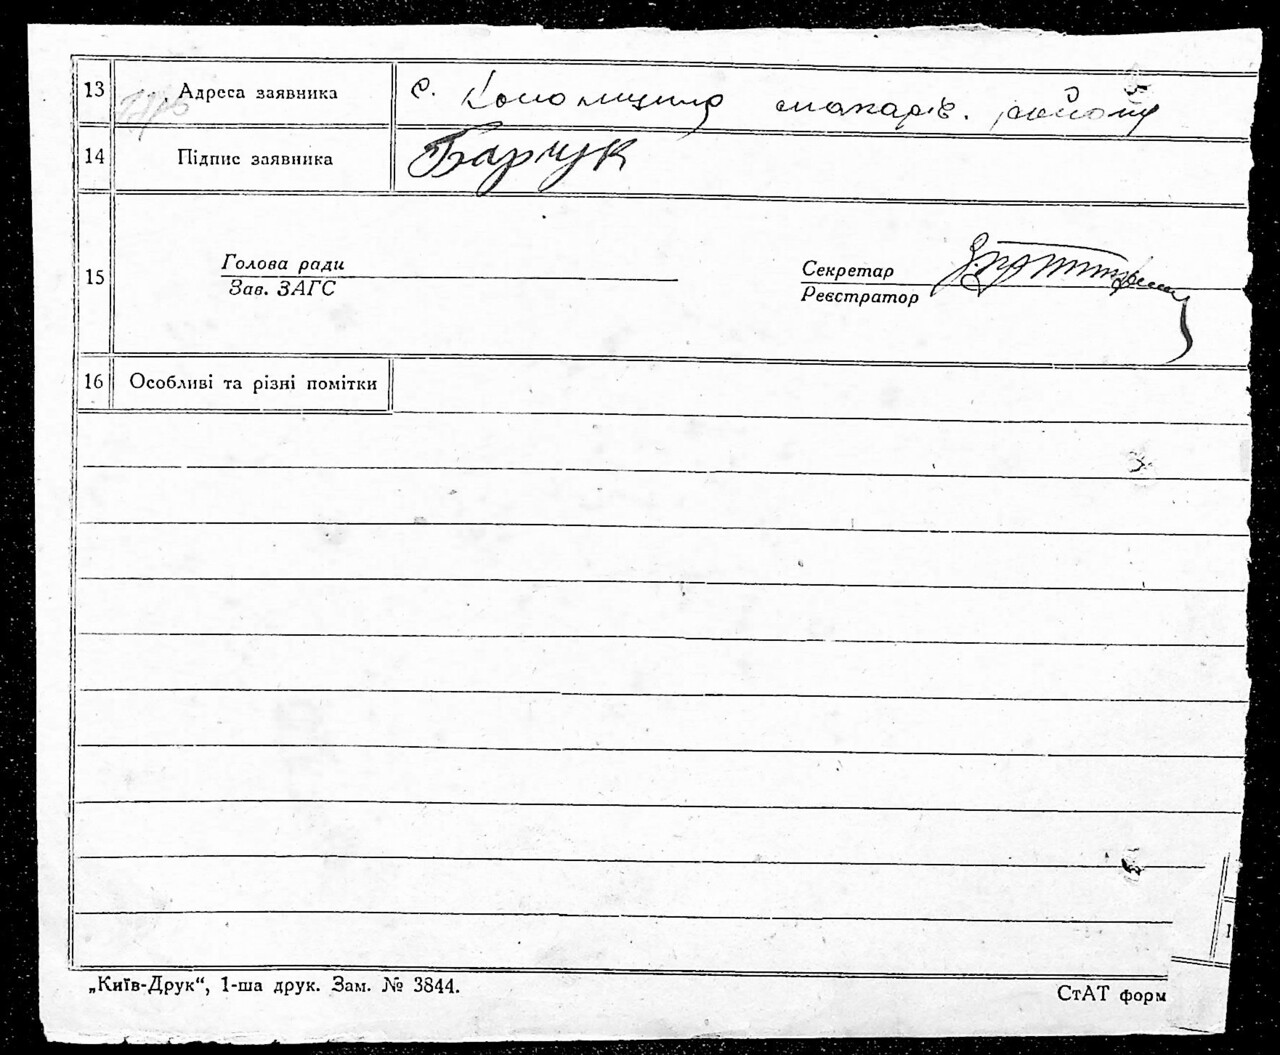 13 Адреса заявника с. Колонщина макарів. району
14 Підпис заявника Барчук
15 Голова ради Секретар
Зав. ЗАГС Реєстратор
16 Особливі та різні помітки
„Київ-Друк“, 1-ша друк. Зам. № 3844.
СтАТ форм